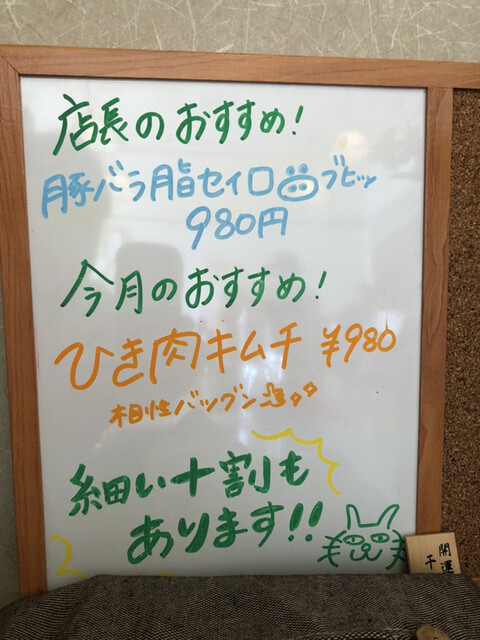 店長のおすすめ!
豚バラ脂セイロ ブヒッ
980円
今月のおすすめ!
ひき肉キムチ ¥980
相性バツグン
細い十割も
あります!!
開運
千